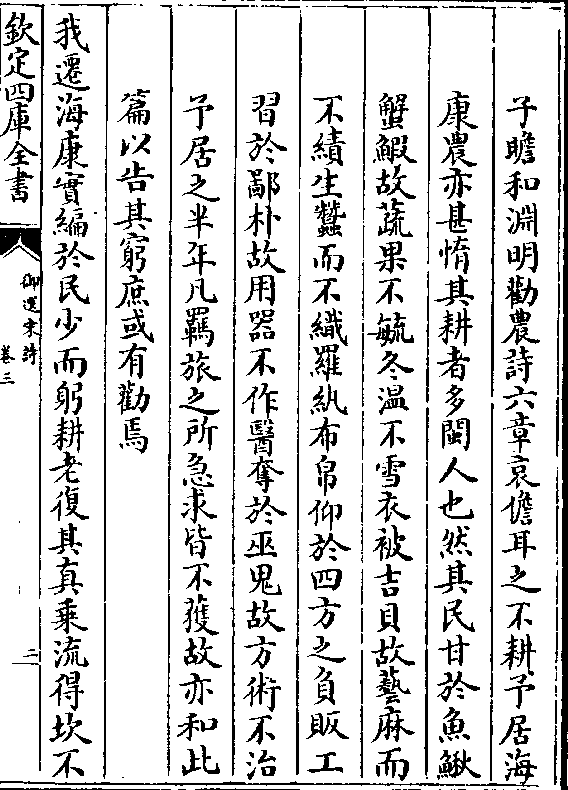 子瞻和淵明勸農詩六章哀儋耳之不耕予居海
康農亦甚惰其耕者多閩人也然其民甘於魚鰍
蟹鰕故蔬果不毓冬溫不雪衣被吉貝故藝麻而
不績生蠶而不織羅紈布帛仰於四方之負販工
習於鄙朴故用器不作醫奪於巫鬼故方術不治
予居之半年凡羈旅之所急求皆不獲故亦和此
篇以告其窮庶或有勸焉
我遷海康實編於民少而躬耕老復其真乘流得坎不
欽定四庫全書
御選宋詩
卷三
三